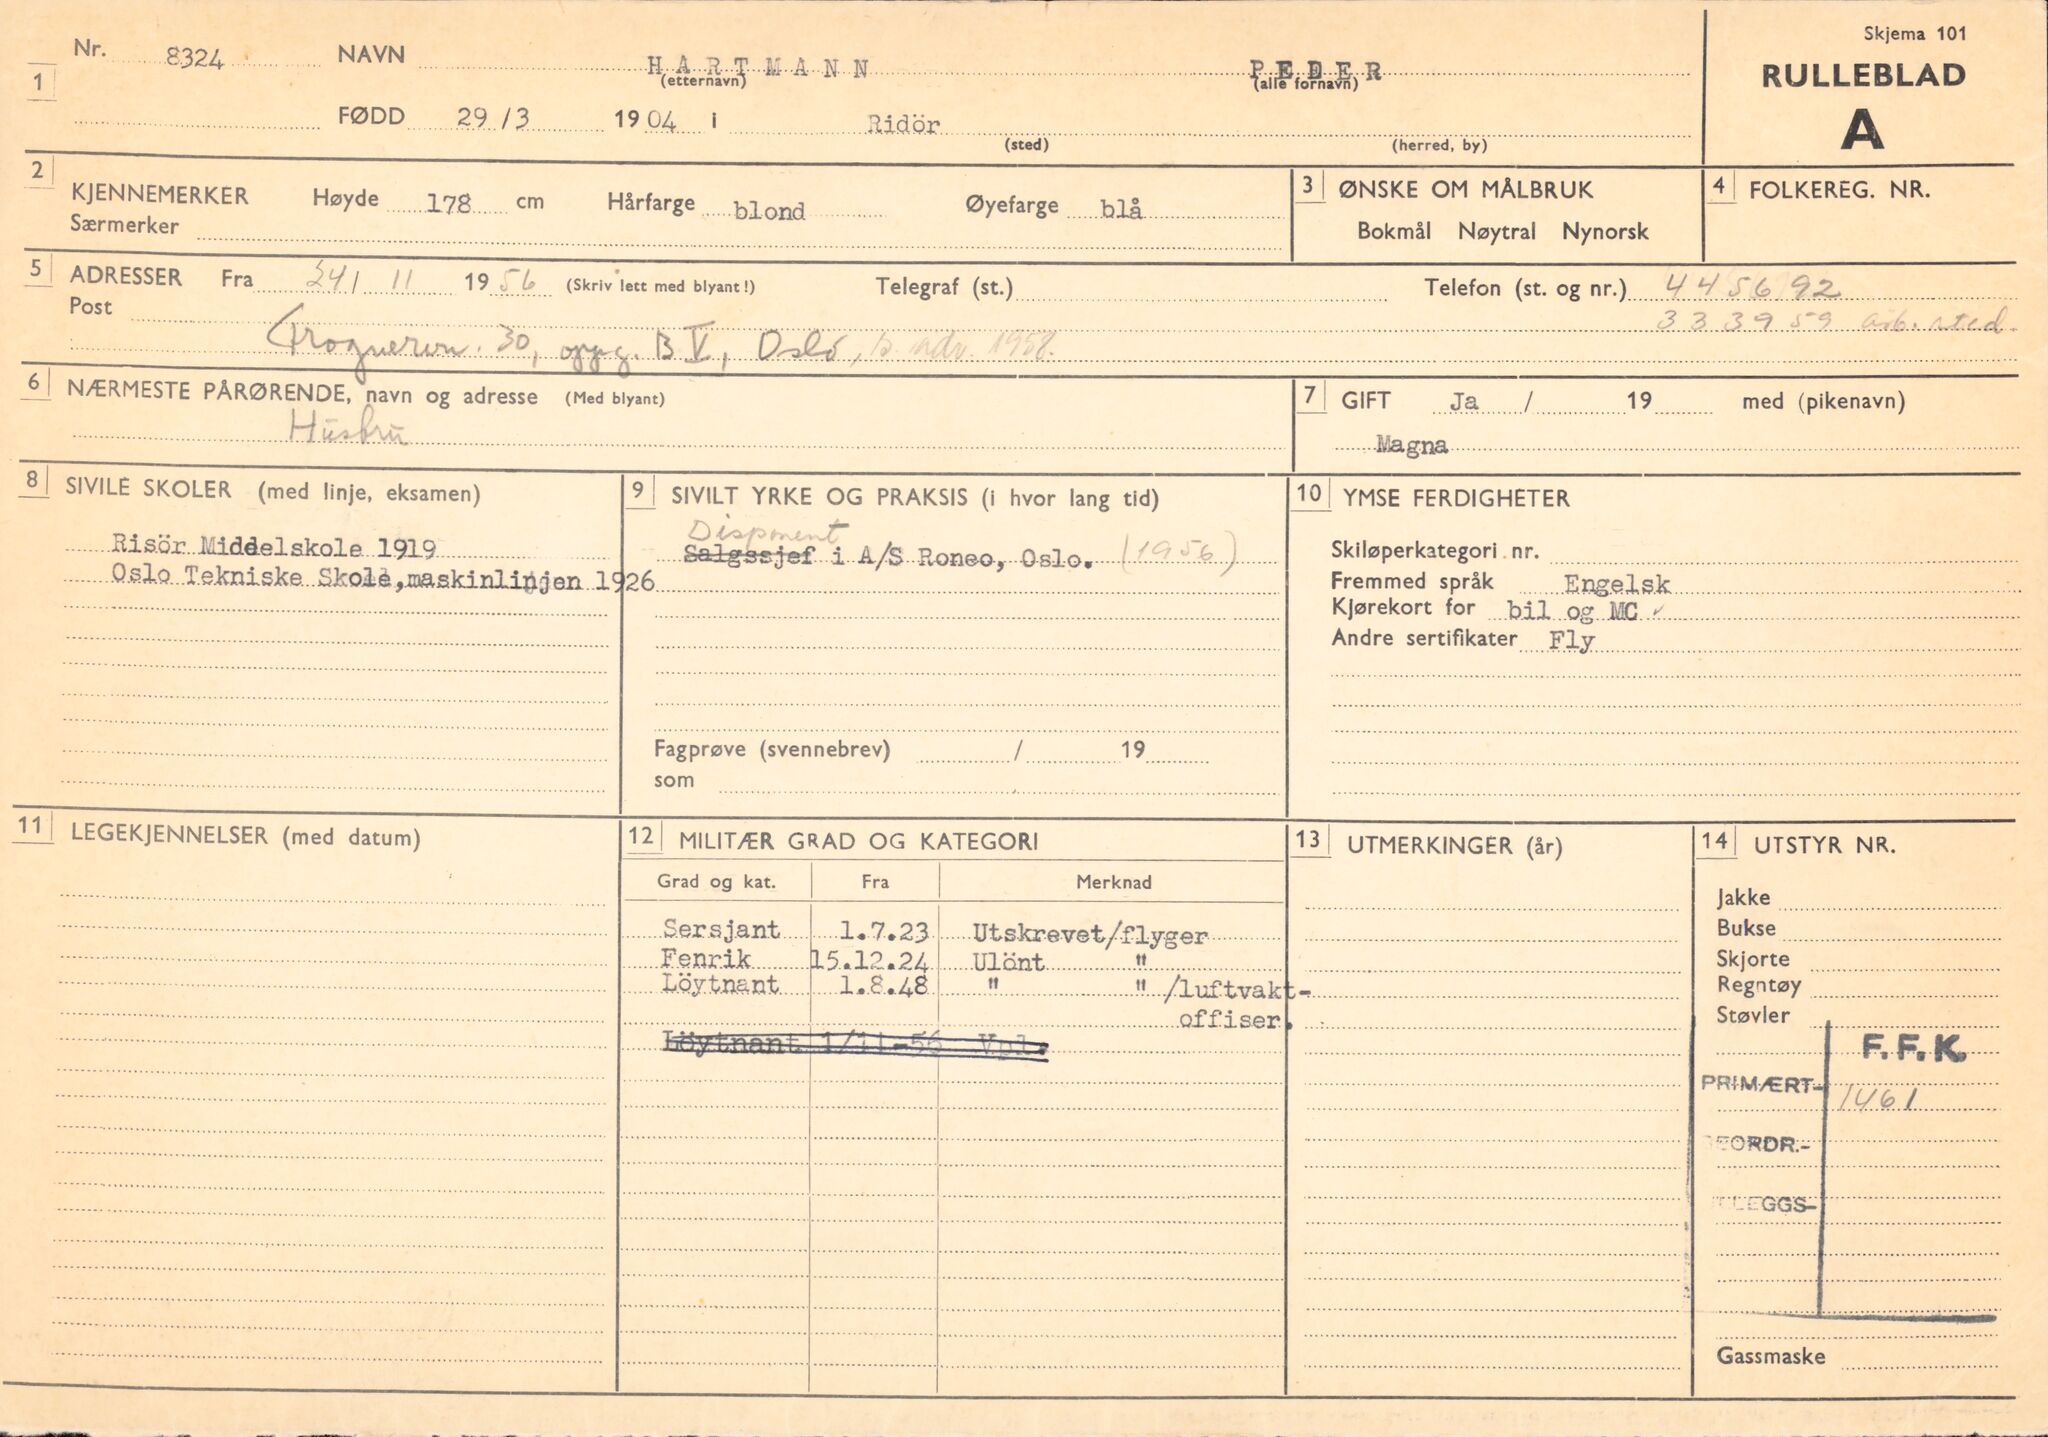 Skjema 101
RULLEBLAD
A
1 Nr. 8324 NAVN HARTMANN PEDER
(etternavn) (alle fornavn)
FØDD 29/3 1904 i Ridör
(sted) (herred, by)
2 KJENNEMERKER Høyde 178 cm Hårfarge blond Øyefarge blå
Særmerker
3 ØNSKE OM MÅLBRUK
Bokmål Nøytral Nynorsk
4 FOLKEREG. NR.
5 ADRESSER Fra 24/ 11 1956 (Skriv lett med blyant!) Telegraf (st.) Telefon (st. og nr.) 445692
Post 333959 arb. sted.
30, oppg. B V, Oslo, 1958.
6 NÆRMESTE PÅRØRENDE, navn og adresse (Med blyant)
Husfru
7 GIFT Ja / 19 med (pikenavn)
Magna
8 SIVILE SKOLER (med linje, eksamen)
Risör Middelskole 1919
Oslo Tekniske Skole, maskinlinjen 1926
9 SIVILT YRKE OG PRAKSIS (i hvor lang tid)
Disponent
Salgssjef i A/S Roneo, Oslo. (1956)
Fagprøve (svennebrev) / 19
som
10 YMSE FERDIGHETER
Skiløperkategori nr.
Fremmed språk Engelsk
Kjørekort for bil og MC
Andre sertifikater Fly
11 LEGEKJENNELSER (med datum)
12 MILITÆR GRAD OG KATEGORI
Grad og kat. Fra Merknad
Sersjant 1.7.23 Utskrevet/flyger
Fenrik 15.12.24 Ulönt "
Löytnant 1.8.48 " " /luftvakt-
offiser.
Löytnant 1/11-56 Vpl.
13 UTMERKINGER (år)
14 UTSTYR NR.
Jakke
Bukse
Skjorte
Regntøy
Støvler
F.F.K.
PRIMÆRT- 1461
BEORDR.-
Gassmaske